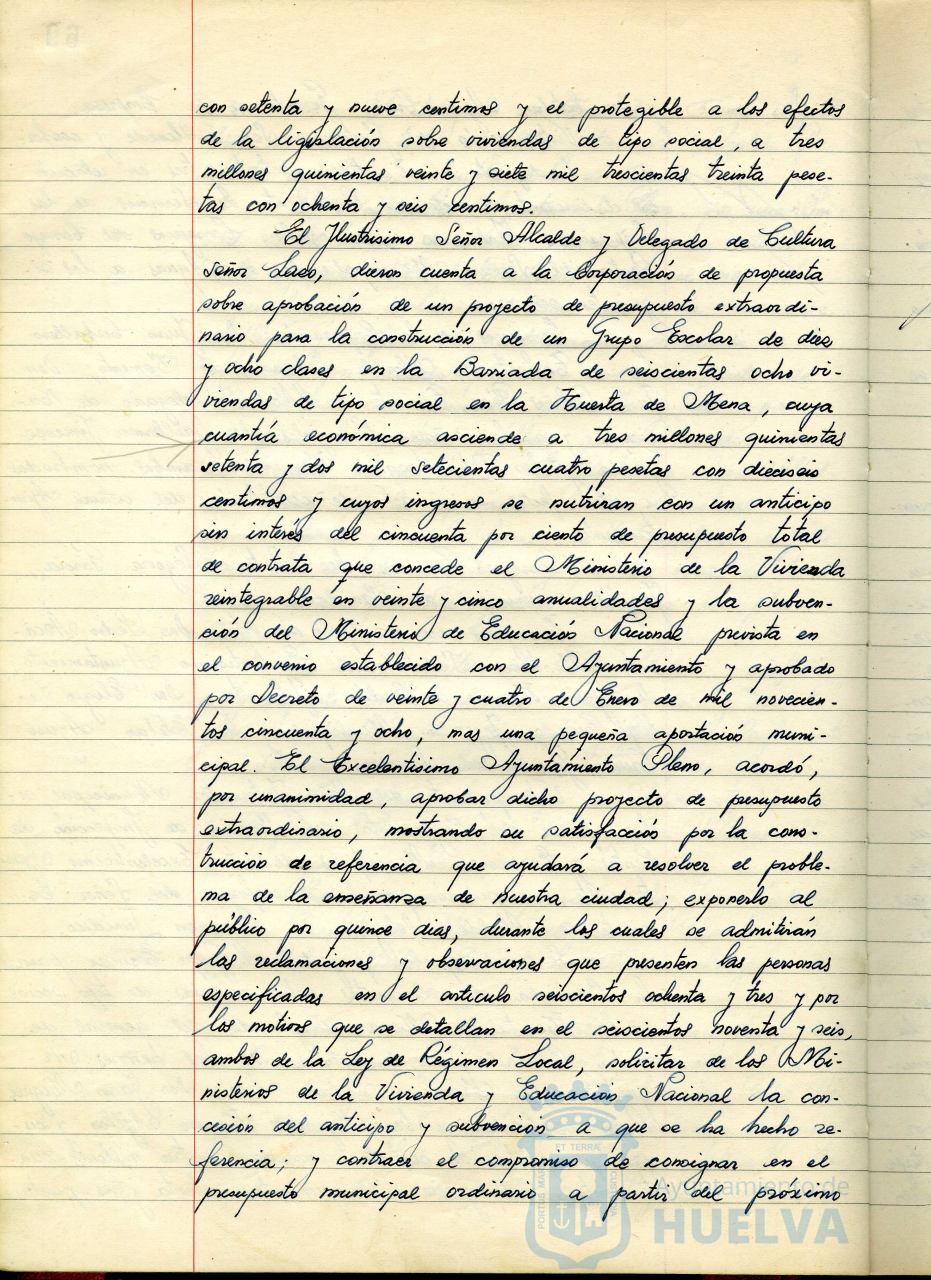 con setenta y nueve centimos y el protegible a los efectos
de la ligislación sobre viviendas de tipo social, a tres
millones quinientas veinte y siete mil trescientas treinta pese-
tas con ochenta y seis centimos.
El Ilustrisimo Señor Alcalde y Delegado de Cultura
Señor Laso, dieron cuenta a la Corporación de propuesta
sobre aprobación de un proyecto de presupuesto extraordi-
nario para la construcción de un Grupo Escolar de diez
y ocho clases en la Barriada de seiscientas ocho vi-
viendas de tipo social en la Huerta de Mena, cuya
cuantiá económica asciende a tres millones quinientas
setenta y dos mil setecientas cuatro pesetas con dieciseis
centimos y cuyos ingresos se nutriran con un anticipo
sin interés del cincuenta por ciento de presupuesto total
de contrata que concede el Ministerio de la Vivienda
reintegrable en veinte y cinco anualidades y la subven-
ción del Ministerio de Educación Nacional prevista en
el convenio establecido con el Ayuntamiento y aprobado
por Decreto de veinte y cuatro de Enero de mil novecien-
tos cincuenta y ocho, mas una pequeña aportación muni-
cipal. El Excelentisimo Ayuntamiento Pleno, acordó,
por unanimidad, aprobar dicho proyecto de presupuesto
extraordinario, mostrando su satisfacción por la cons-
trucción de referencia que ayudará a resolver el proble-
ma de la enseñanza de nuestra ciudad; exponerlo al
público por quince dias, durante los cuales se admitirán
las reclamaciones y observaciones que presenten las personas
especificadas en el articulo seiscientos ochenta y tres y por
los motivos que se detallan en el seiscientos noventa y seis,
ambos de la Ley de Régimen Local, solicitar de los Mi-
nisterios de la Vivienda y Educación Nacional la con-
cesión del anticipo y subvención a que se ha hecho re-
ferencia; y contraer el compromiso de consignar en el
presupuesto municipal ordinario a partir del próximo
Ayuntamiento de
HUELVA